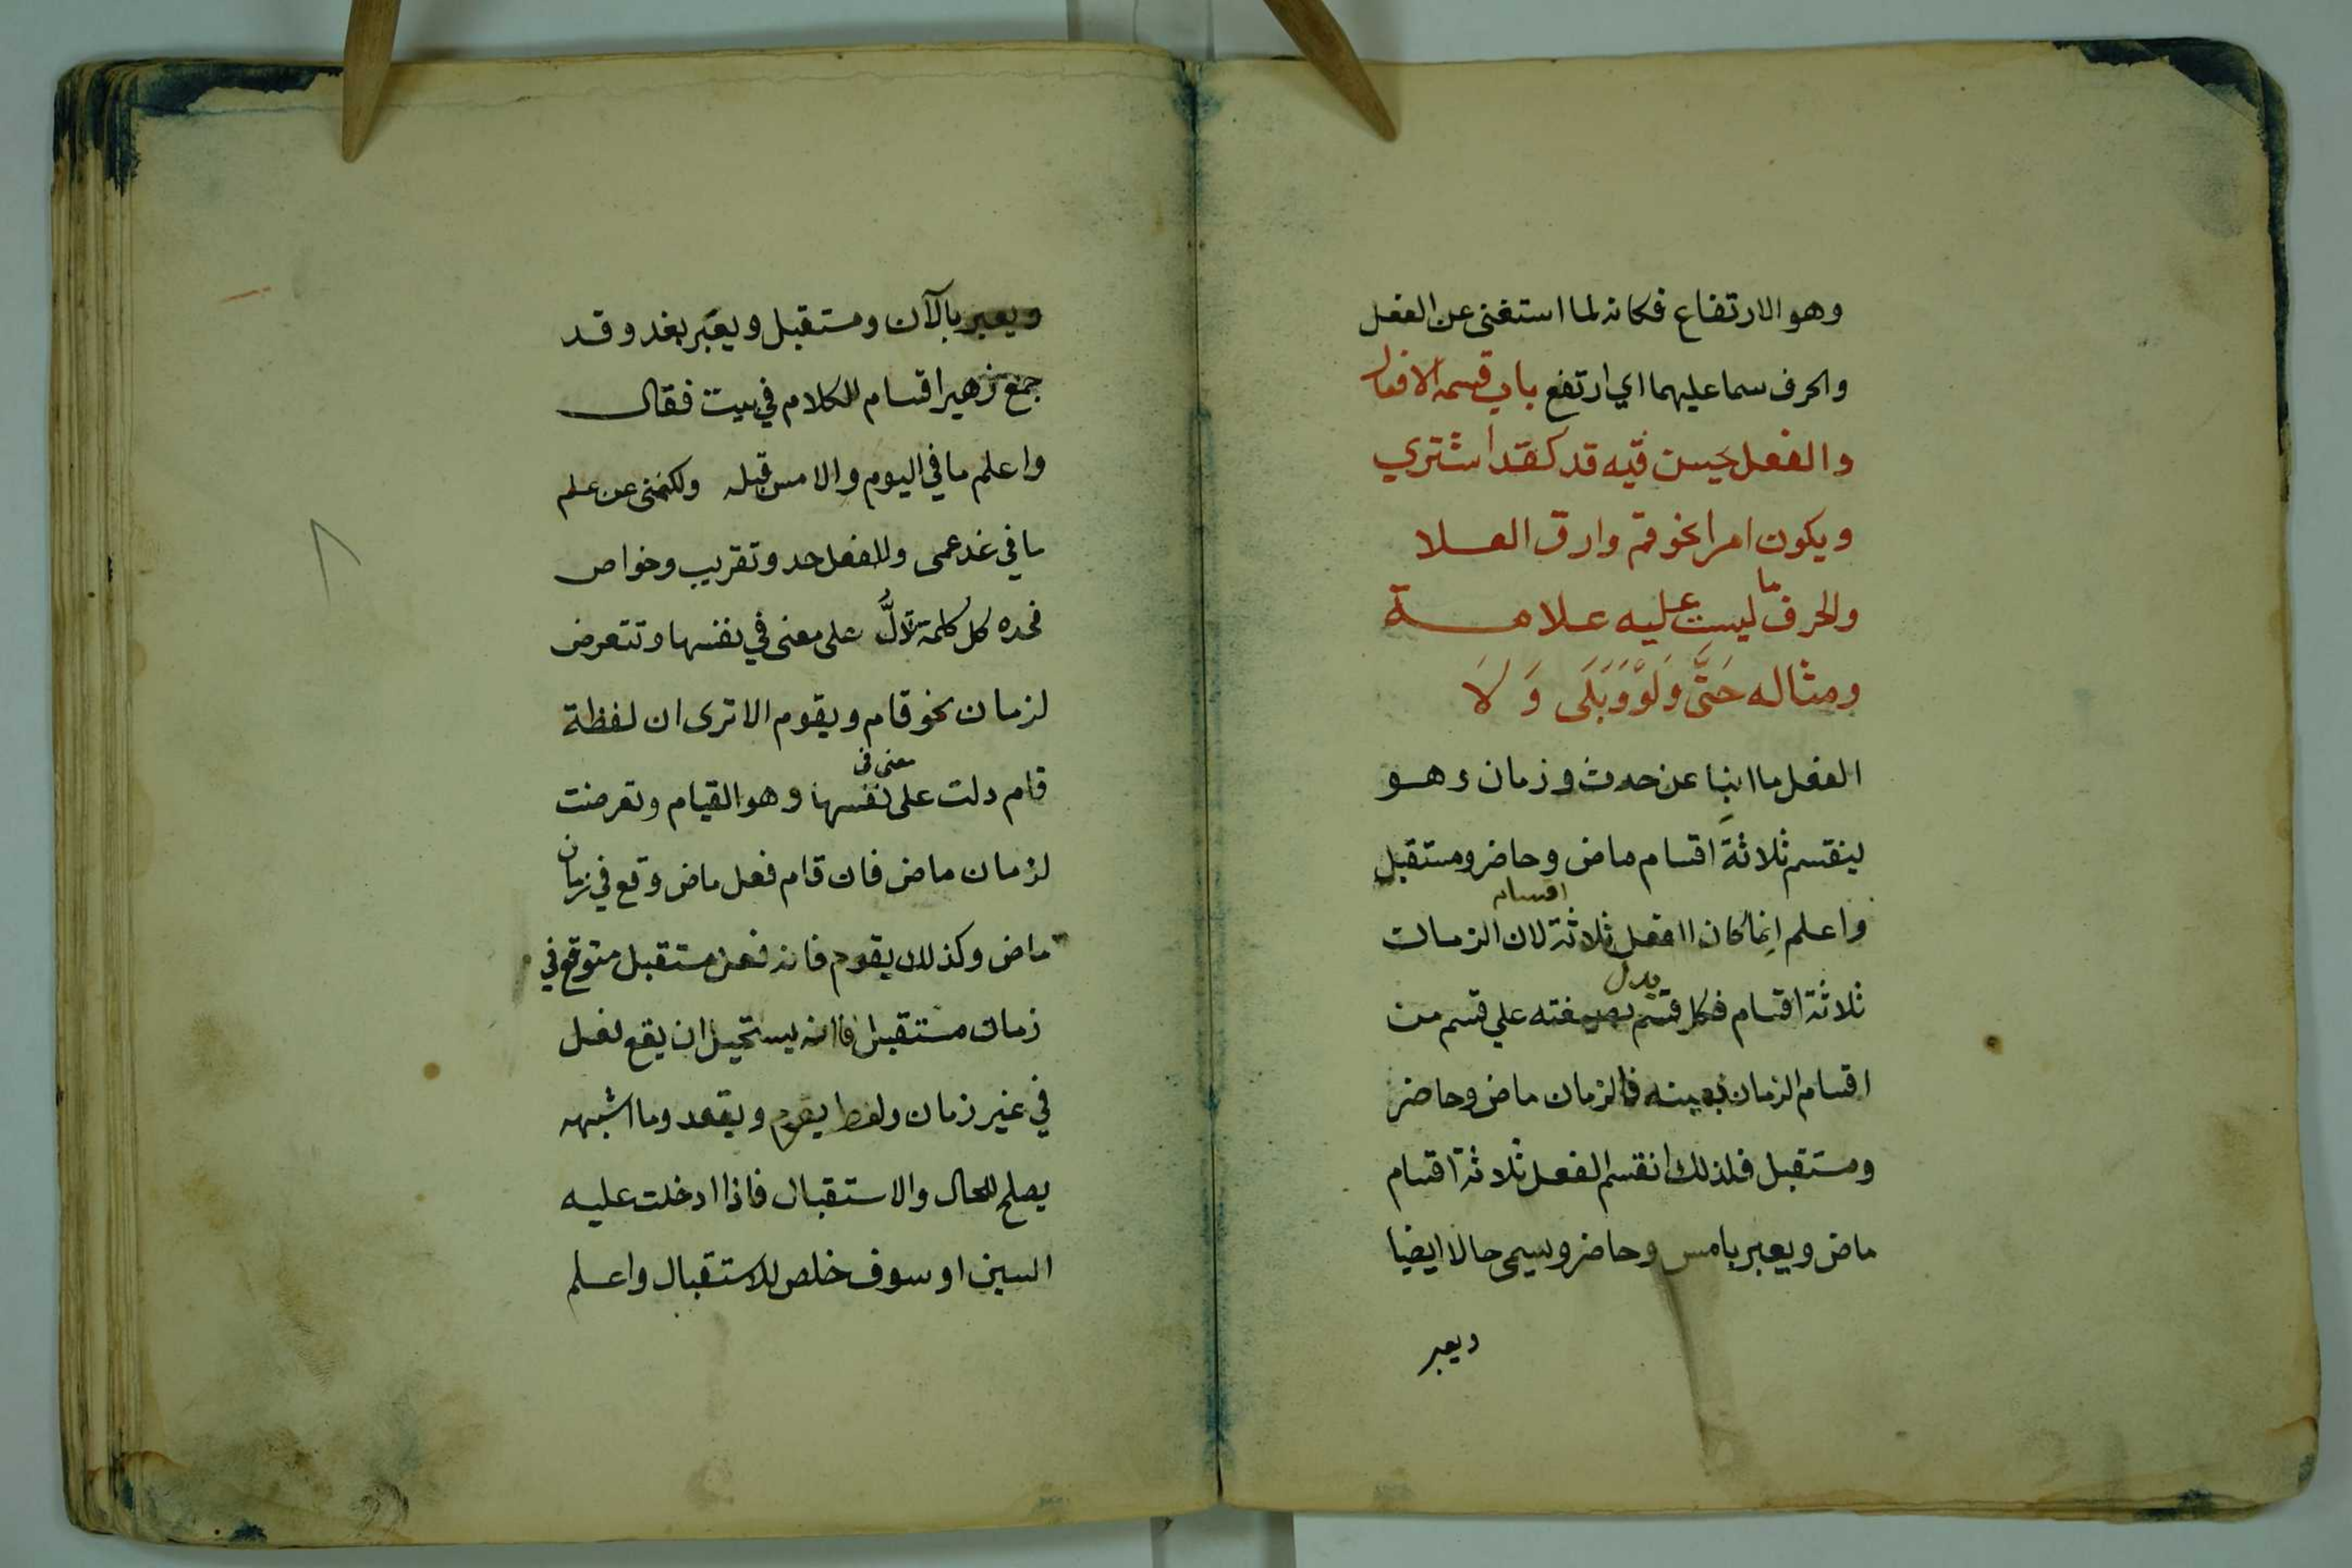 وهو الارتفاع فكانه لما استغنى عن الفعل
والحرف سما عليهما اي ارتفع باب قسمة الافعال
والفعل يحسن فيه قد كقد اشتري
ويكون امرا نحو قم وارق العلا
والحرف ما ليست عليه علامة
ومثاله حَتَّى وَلَوْ وَبَلَى وَلَا
الفعل ما انبا عن حدث وزمان وهو
ينقسم ثلاثة اقسام ماض وحاضر ومستقبل
واعلم انما كان الفعل ثلاثة اقسام لان الزمان
ثلاثة اقسام فكل قسم يدل بصيغته علي قسم من
اقسام الزمان بعينه فالزمان ماض وحاضر
ومستقبل فلذلك انقسم الفعل ثلاثة اقسام
ماض ويعبر بامس وحاضر ويسمى حالا ايضا
ويعبر
ويعبر بالآن ومستقبل ويعبّر بغد وقد
جمع زهير اقسام الكلام في بيت فقال
واعلم ما في اليوم والامس قبله ولكنني عن علم
ما في غد عمى وللفعل حد وتقريب وخواص
فحده كل كلمة تدلُّ على معنى في نفسها وتتعرض
لزمان نحو قام ويقوم الا ترى ان لفظة
قام دلت على معنى في نفسها وهو القيام وتعرضت
لزمان ماض فان قام فعل ماض وقع في زمان
ماض وكذلك يقوم فانه فعل مستقبل متوقع في
زمان مستقبل فانه يستحيل ان يقع فعل
في غير زمان ولفظ يقوم ويقعد وما اشبهه
يصلح للحال والاستقبال فاذا ادخلت عليه
السين او سوف خلص للاستقبال واعلم